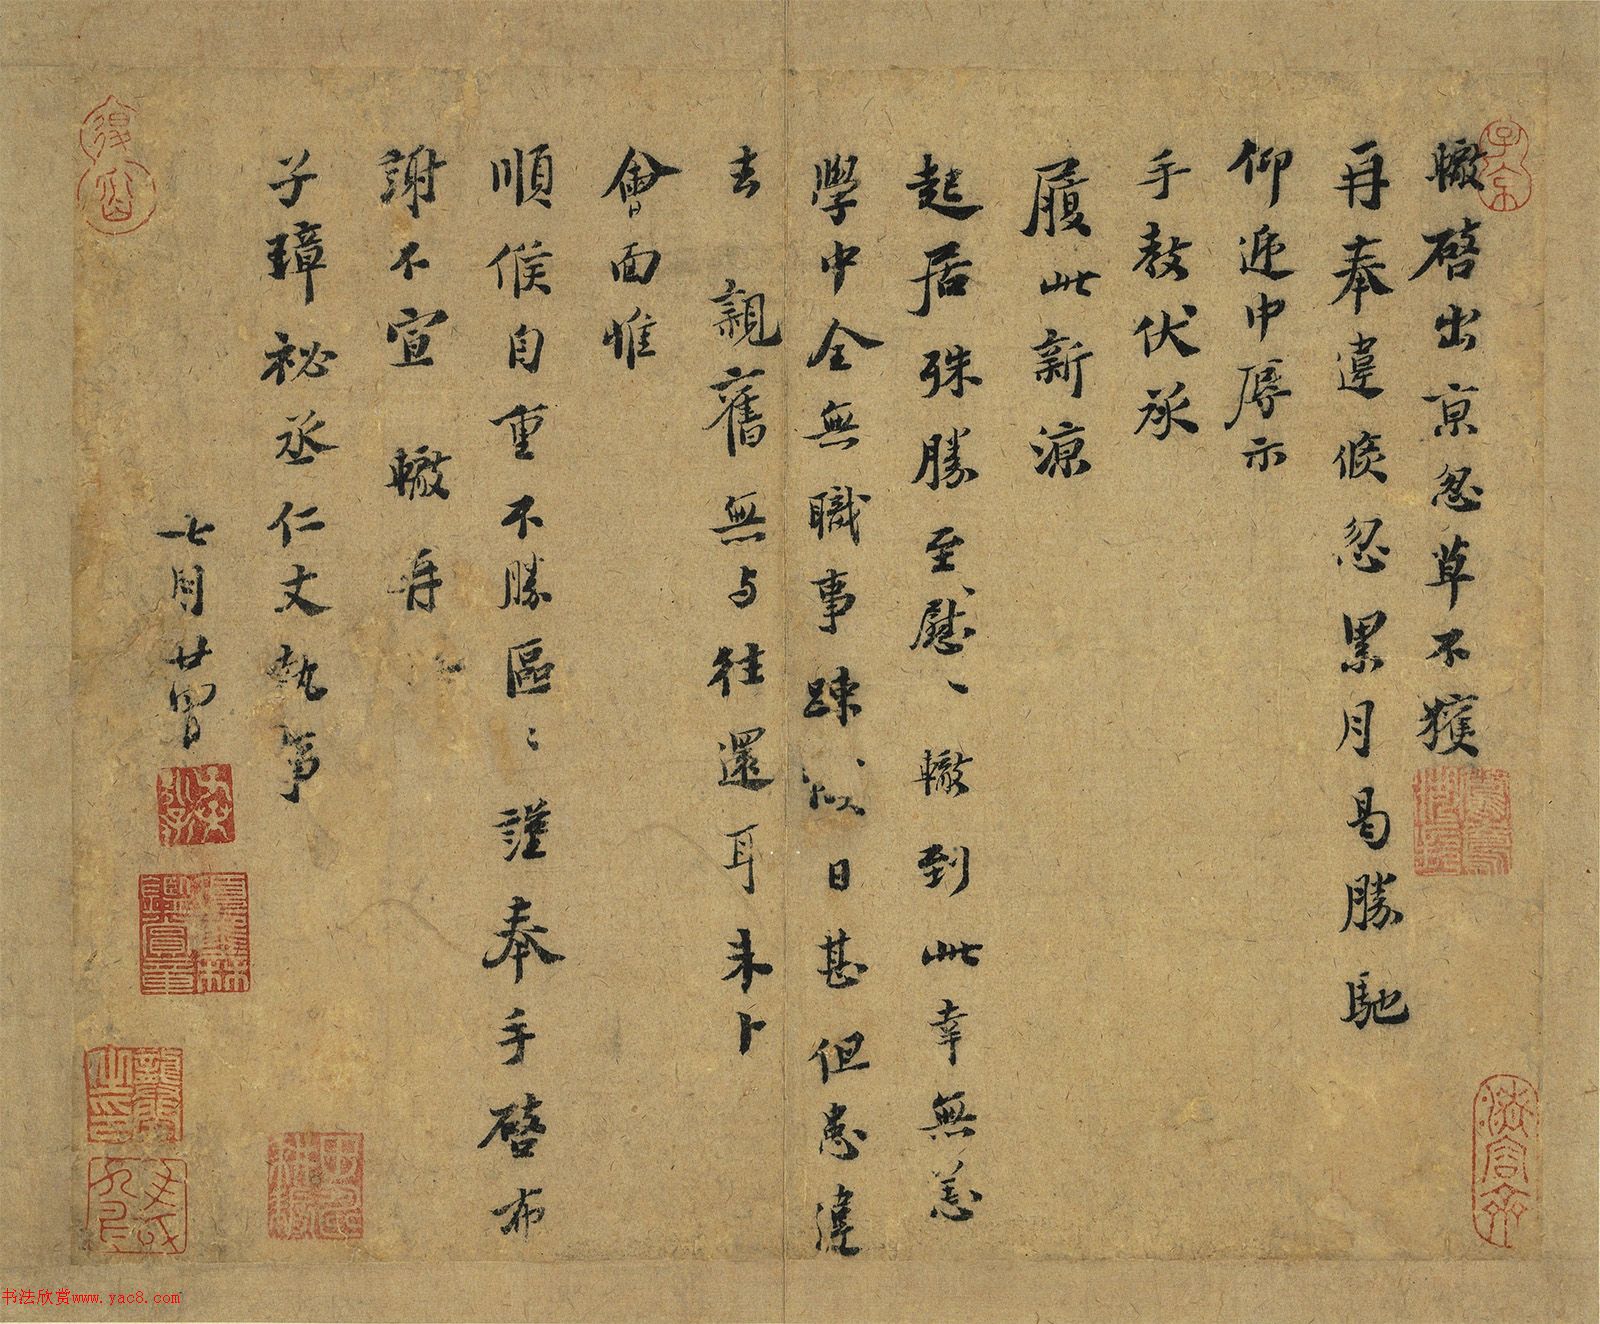 轍啓出京忽草不獲
再奉違倐忽累月曷勝馳
仰逓中辱示
手教伏承
履此新涼
起居殊勝至慰、轍到此幸無恙
學中全無職事踈拙日甚但患違
去 親舊無与往還耳未卜
會面惟
順候自重不勝區〻謹奉手啓布
謝不宣 轍再
子璋祕丞仁丈執事
七月廿
书法欣赏www.yac8.com